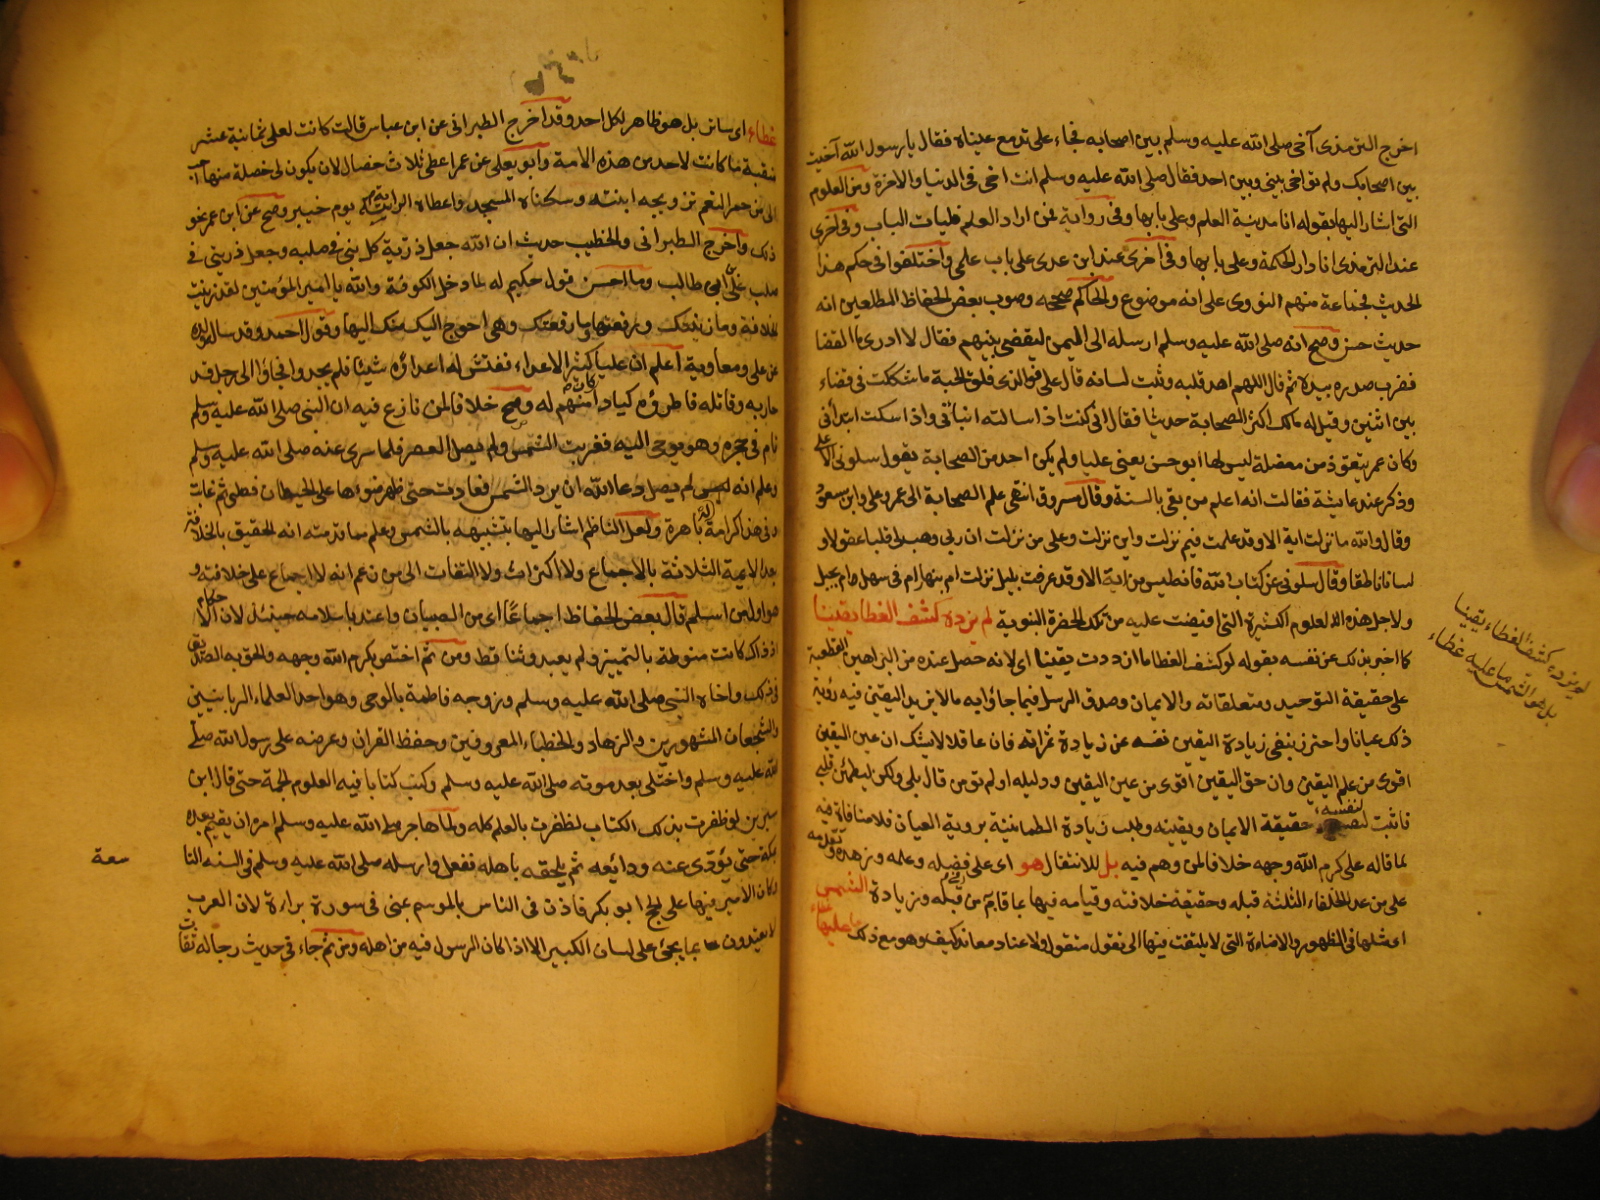 اخرج الترمذى آخى صلى الله عليه وسلم بين اصحابه فجاء على تدمع عيناه فقال يا رسول الله آخيت
بين اصحابك ولم تواخى بينى وبين احد فقال صلى الله عليه وسلم انت اخى فى الدنيا والاخرة ومن العلوم
التى اشار اليها بقوله انا مدينة العلم وعلى بابها وفى رواية فمن اراد العلم فليات الباب وفى اخرى
عند الترمذى انا دار الحكمة وعلى بابها وفى اخرى عند ابن عدى على باب علمى واختلفوا فى حكم هذا
الحديث فجماعة منهم النووى على انه موضوع والحاكم صححه وصوب بعض الحفاظ المطلعين انه
حديث حسن وصح انه صلى الله عليه وسلم ارسله الى اليمن ليقضى بينهم فقال لا ادرى ما القضا
فضرب صدره بيده ثم قال اللهم اهد قلبه وثبت لسانه قال على فوالذى فلق الحبة ما شككت فى قضاء
بين اثنين وقيل له مالك اكثر الصحابة حديثا فقال انى كنت اذا سالته انبانى واذا سكت ابتدأنى
وكان عمر يتعوذ من معضلة ليس لها ابو حسن يعنى عليا ولم يكن احد من الصحابة يقول سلونى الا على
وذكر عند عايشة فقالت انه اعلم من بقى بالسنة وقال مسروق انتهى علم الصحابة الى عمر وعلى وابن مسعود
وقال والله ما نزلت اية الا وقد علمت فيم نزلت واين نزلت وعلى من نزلت ان ربى وهب لى قلبا عقولا و
لسانا ناطقا وقال سلونى عن كتاب الله فانه ليس من اية الا وقد عرفت بليل نزلت ام بنهار ام فى سهل ام بجبل
ولاجل هذه العلوم الكثيرة التى افيضت عليه من تلك الحضرة النبوية لم يزده كشف الغطا يقينا
كما اخبر بذلك عن نفسه بقوله لو كشف الغطا ما ازددت يقينا اى لانه حصل عنده من البراهين القطعية
على حقيقة التوحيد ومتعلقاته والايمان وصدق الرسل فيما جاؤا به ما لا يزيد اليقين فيه رؤية
ذلك عيانا واحترز بنفى زيادة اليقين نفسه عن زيادة ثمراته فان عاقلا لا يشك ان عين اليقين
اقوى من علم اليقين وان حق اليقين اقوى من عين اليقين ودليله اولم تؤمن قال بلى ولكن ليطمئن قلبى
فاثبت لنفسه حقيقة الايمان ويقينه وطلب زيادة الطمانينة بروية العيان فلا منافاة فيه
لما قاله على كرم الله وجهه خلافا لمن وهم فيه بل للانتقال هو اى على فضيله وعلمه وزهده وتقدمه
على من عد الخلفاء الثلثة قبله وحقيقة خلافته وقيامه فيها بما قام من قبله وزيادة الشمس
اى مثلها فى الظهور والاضاءة التى لا يلتفت فيها الى تقول متقول ولا عناد معاند كيف وهو مع ذلك ما عليها غطاء
لم يزده كشف الغطاء يقينا
بل هو الشمس ما عليه غطاء
غطاء اى ساتر بل هو ظاهر لكل احد وقد اخرج الطبرانى عن ابن عباس قال كانت لعلى ثمانية عشر
منقبة ما كانت لاحد من هذه الامة وابو يعلى عن عمر اعطى على ثلاث خصال لان يكون لى خصلة منها احب
الى من حمر النعم تزويجه ابنته وسكناه المسجد واعطاه الراية يوم خيبر وصح عن ابن عمر نحو
ذلك واخرج الطبرانى والخطيب حديث ان الله جعل ذرية كل نبى فى صلبه وجعل ذريتى فى
صلب على ابن ابى طالب وما احسن قول حكيم له لما دخل الكوفة والله يا امير المؤمنين لقد زينت
الخلافة وما زينتك ورفعتها وما رفعتك وهى احوج اليك منك اليها وقول احمد وقد ساله ولده
عن على ومعاوية اعلم ان عليا كثير الاعداء ففتش له اعداؤه شيئا فلم يجدوا فجاؤا الى رجل قد
حاربه وقاتله فاطروه كيادا منهم له وصح خلافا لمن نازع فيه ان النبى صلى الله عليه وسلم
نام فى حجره وهو يوحى اليه فغربت الشمس ولم يصل العصر فلما سرى عنه صلى الله عليه وسلم
وعلم انه لم يصل دعا الله ان يرد الشمس فعادت حتى ظهر ضوءها على الحيطان فصلى ثم غابت
وفى هذا كرامة له باهرة ولعل الناظم اشار اليها بتشبيهه بالشمس وعلم مما قدمته انه الحقيق بالخلافة
بعد الايمة الثلاثة بالاجماع ولا اكتراث ولا التفات الى من زعم انه لا اجماع على خلافته و
هو اول من اسلم قال بعض الحفاظ اجماعا اى من الصبيان واعتد باسلامه حينئذ لان الاحكام
اذ ذاك كانت منوطة بالتمييز ولم يعبد وثنا قط ومن ثم اختص بكرم الله وجهه والحق به الصديق
فى ذلك واخاه النبى صلى الله عليه وسلم وزوجه فاطمة بالوحى وهو احد العلماء الربانيين
والشجعان المشهورين والزهاد والخطباء المعروفين وحفظ القران وعرضه على رسول الله صلى
الله عليه وسلم واختلى بعد موته صلى الله عليه وسلم وكتب كتابا فيه العلوم الجمة حتى قال ابن
سيرين لو ظفرت بذلك الكتاب لظفرت بالعلم كله ولما هاجر صلى الله عليه وسلم امره ان يقيم بعده
بمكة حتى يؤدى عنه ودائعه ثم يلحقه باهله ففعل وارسله صلى الله عليه وسلم فى السنة التا
سعة
وكان الامير فيها على الحج ابو بكر فاذن فى الناس بالموسم عنى فى سورة براءة لان العرب
لا يعتدون بما يجئ على لسان الكبير الا اذا كان الرسول فيه من اهله ومن ثم جاء فى حديث رجاله ثقات